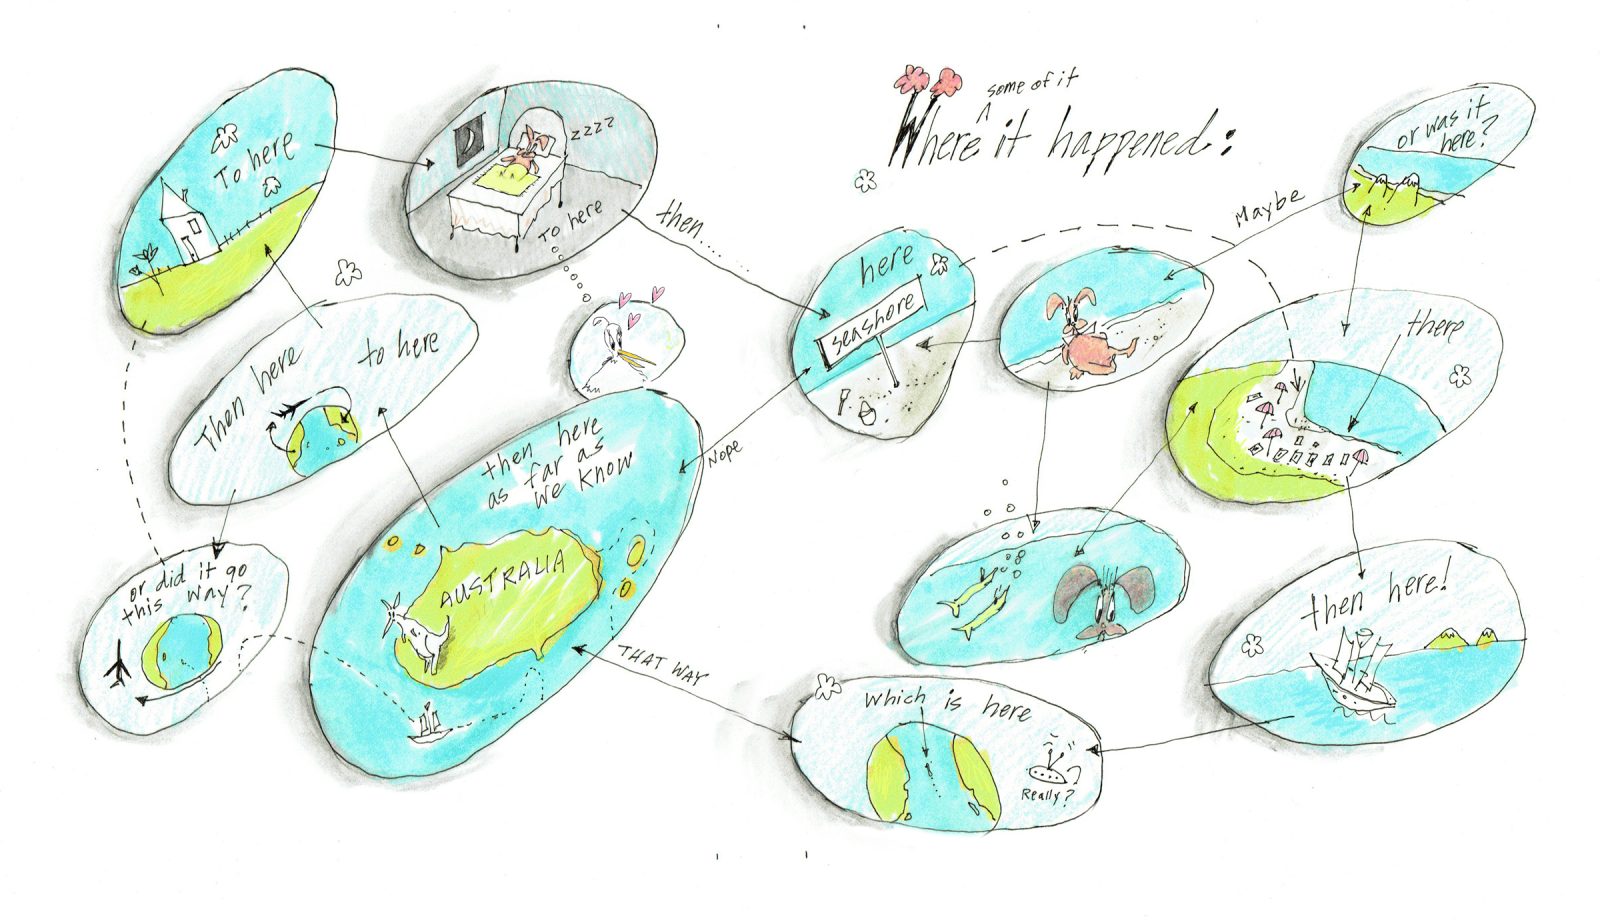 some of it
Where ^ it happened:
or was it
here?
Maybe
To here
zzzz
To here
then.....
here
seashore
there
Then here
to here
then here
as far as
we know
Nope
AUSTRALIA
or did it go
this way?
then here!
THAT WAY
Which is here
Really?